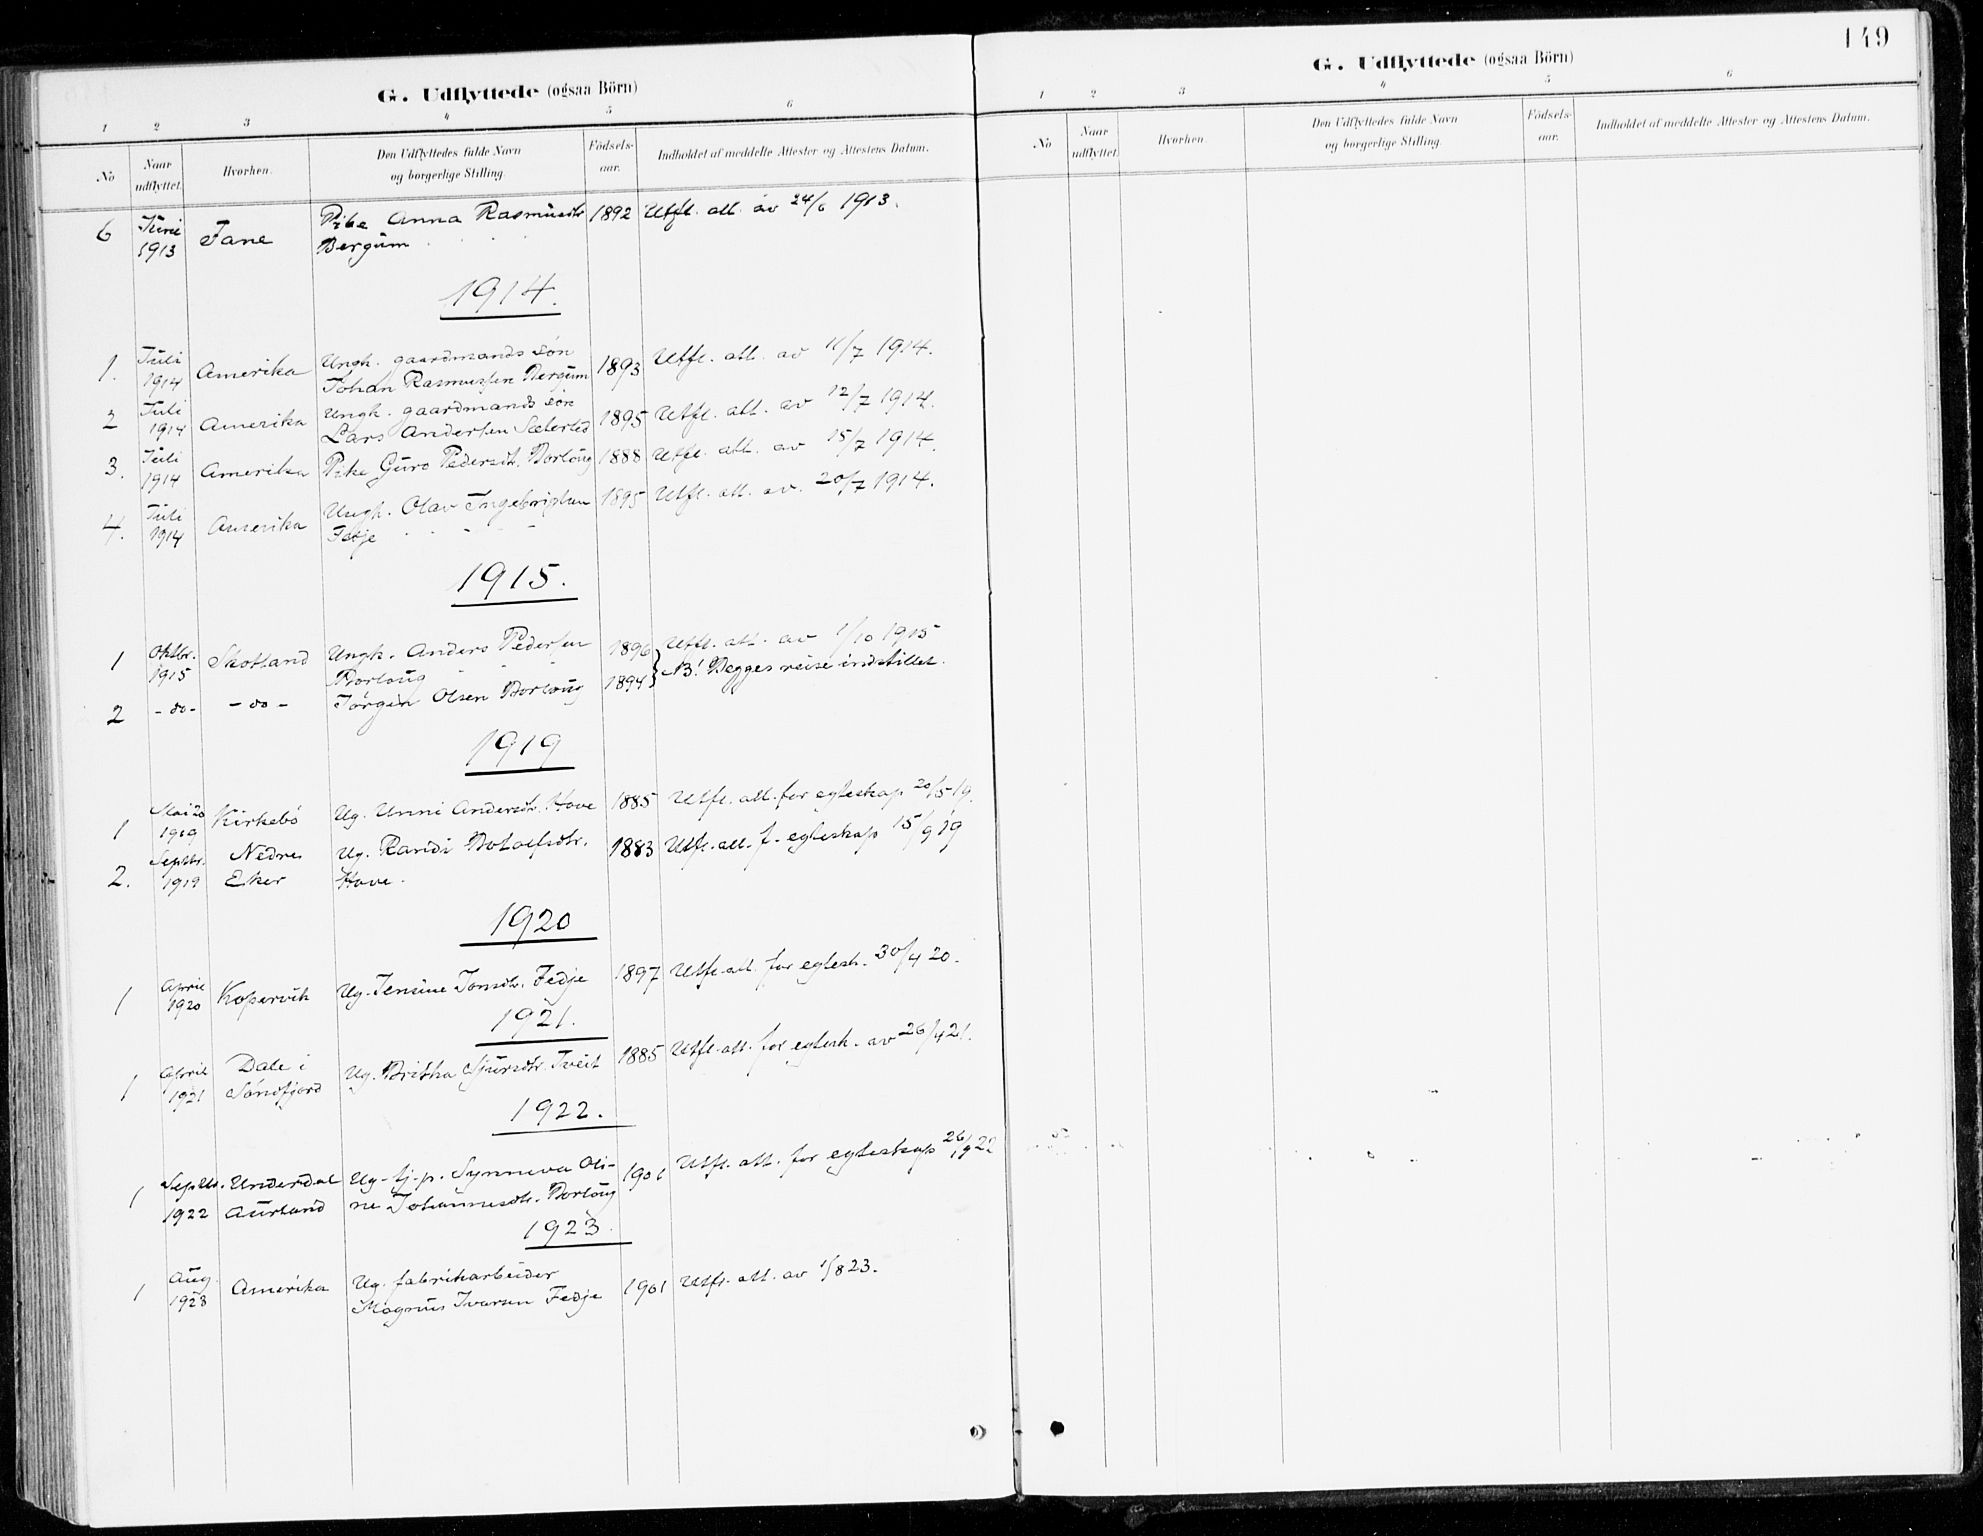 G. Udflyttede (ogsaa Börn)
1 2 3 4 5 6
No
Naar udflyttet.
Hvorhen.
Den Udflyttedes fulde Navn og borgerlige Stilling.
Födsels-aar.
Indholdet af meddelte Attester og Attestens Datum.
6 Juni 1913 Fane Pike Anna Rasmusdtr 1892 Utfl. att. av 24/6 1913.
Bergum
1914.
1. Juli 1914 Amerika Ungk. gaardmands søn 1893 Utfl. att. av 11/7 1914.
Johan Rasmussen Bergum
2 Juli 1914 Amerika Ungk. gaardmands søn 1895 Utfl. att. av 12/7 1914.
Lars Andersen
3. Juli 1914 Amerika Pike Guro Pedersdt. Borlaug 1888 Utfl. att. av 15/7 1914.
4. Juli 1914 Amerika Ungk. Olav Ingebrigtsen 1895 Utfl. att. av. 20/7 1914.
Fedje
1915.
1 Oktbr. 1915 Skotland Ungk. Anders Pedersen 1896 Utfl. att. av 1/10 1915
Borlaug NB! Begges reise indstillet.
2 - do - - do - Jørgen Olsen Borlaug 1894
1919
1 Mai 20 1919 Kirkebö Ug. Unni Andersdtr. Hove 1885 Utfl. att. for egteskap 20/5 19.
2. Septbr. 1919 Nedre Eker Ug. Randi Botolfsdtr. 1883 Utfl. att. f. egteskap 15/9 19
Hove.
1920
1 April 1920 Kopervik Ug. Jensine Jonsdtr. Fedje 1897 Utfl. att. for egtesk. 30/4 20.
1921.
1 April 1921 Dale i Söndfjord Ug. Britha Sjursdtr. Tveit 1885 Utfl. att. for egtesk. av 26/4 21.
1922.
1 Septbr. 1922 Underdal Aurland Ug. tj. p. Synneva Oli- 1901 Utfl. att. for egteskap 26/9 22
ne Johannesdtr. Borlaug
1923.
1 Aug. 1923 Amerika Ug. fabrikarbeider 1901 Utfl. att. av 1/8 23.
Magnus Ivarsen Fedje
149
G. Udflyttede (ogsaa Börn)
1 2 3 4 5 6
No
Naar udflyttet.
Hvorhen.
Den Udflyttedes fulde Navn og borgerlige Stilling.
Födsels-aar.
Indholdet af meddelte Attester og Attestens Datum.